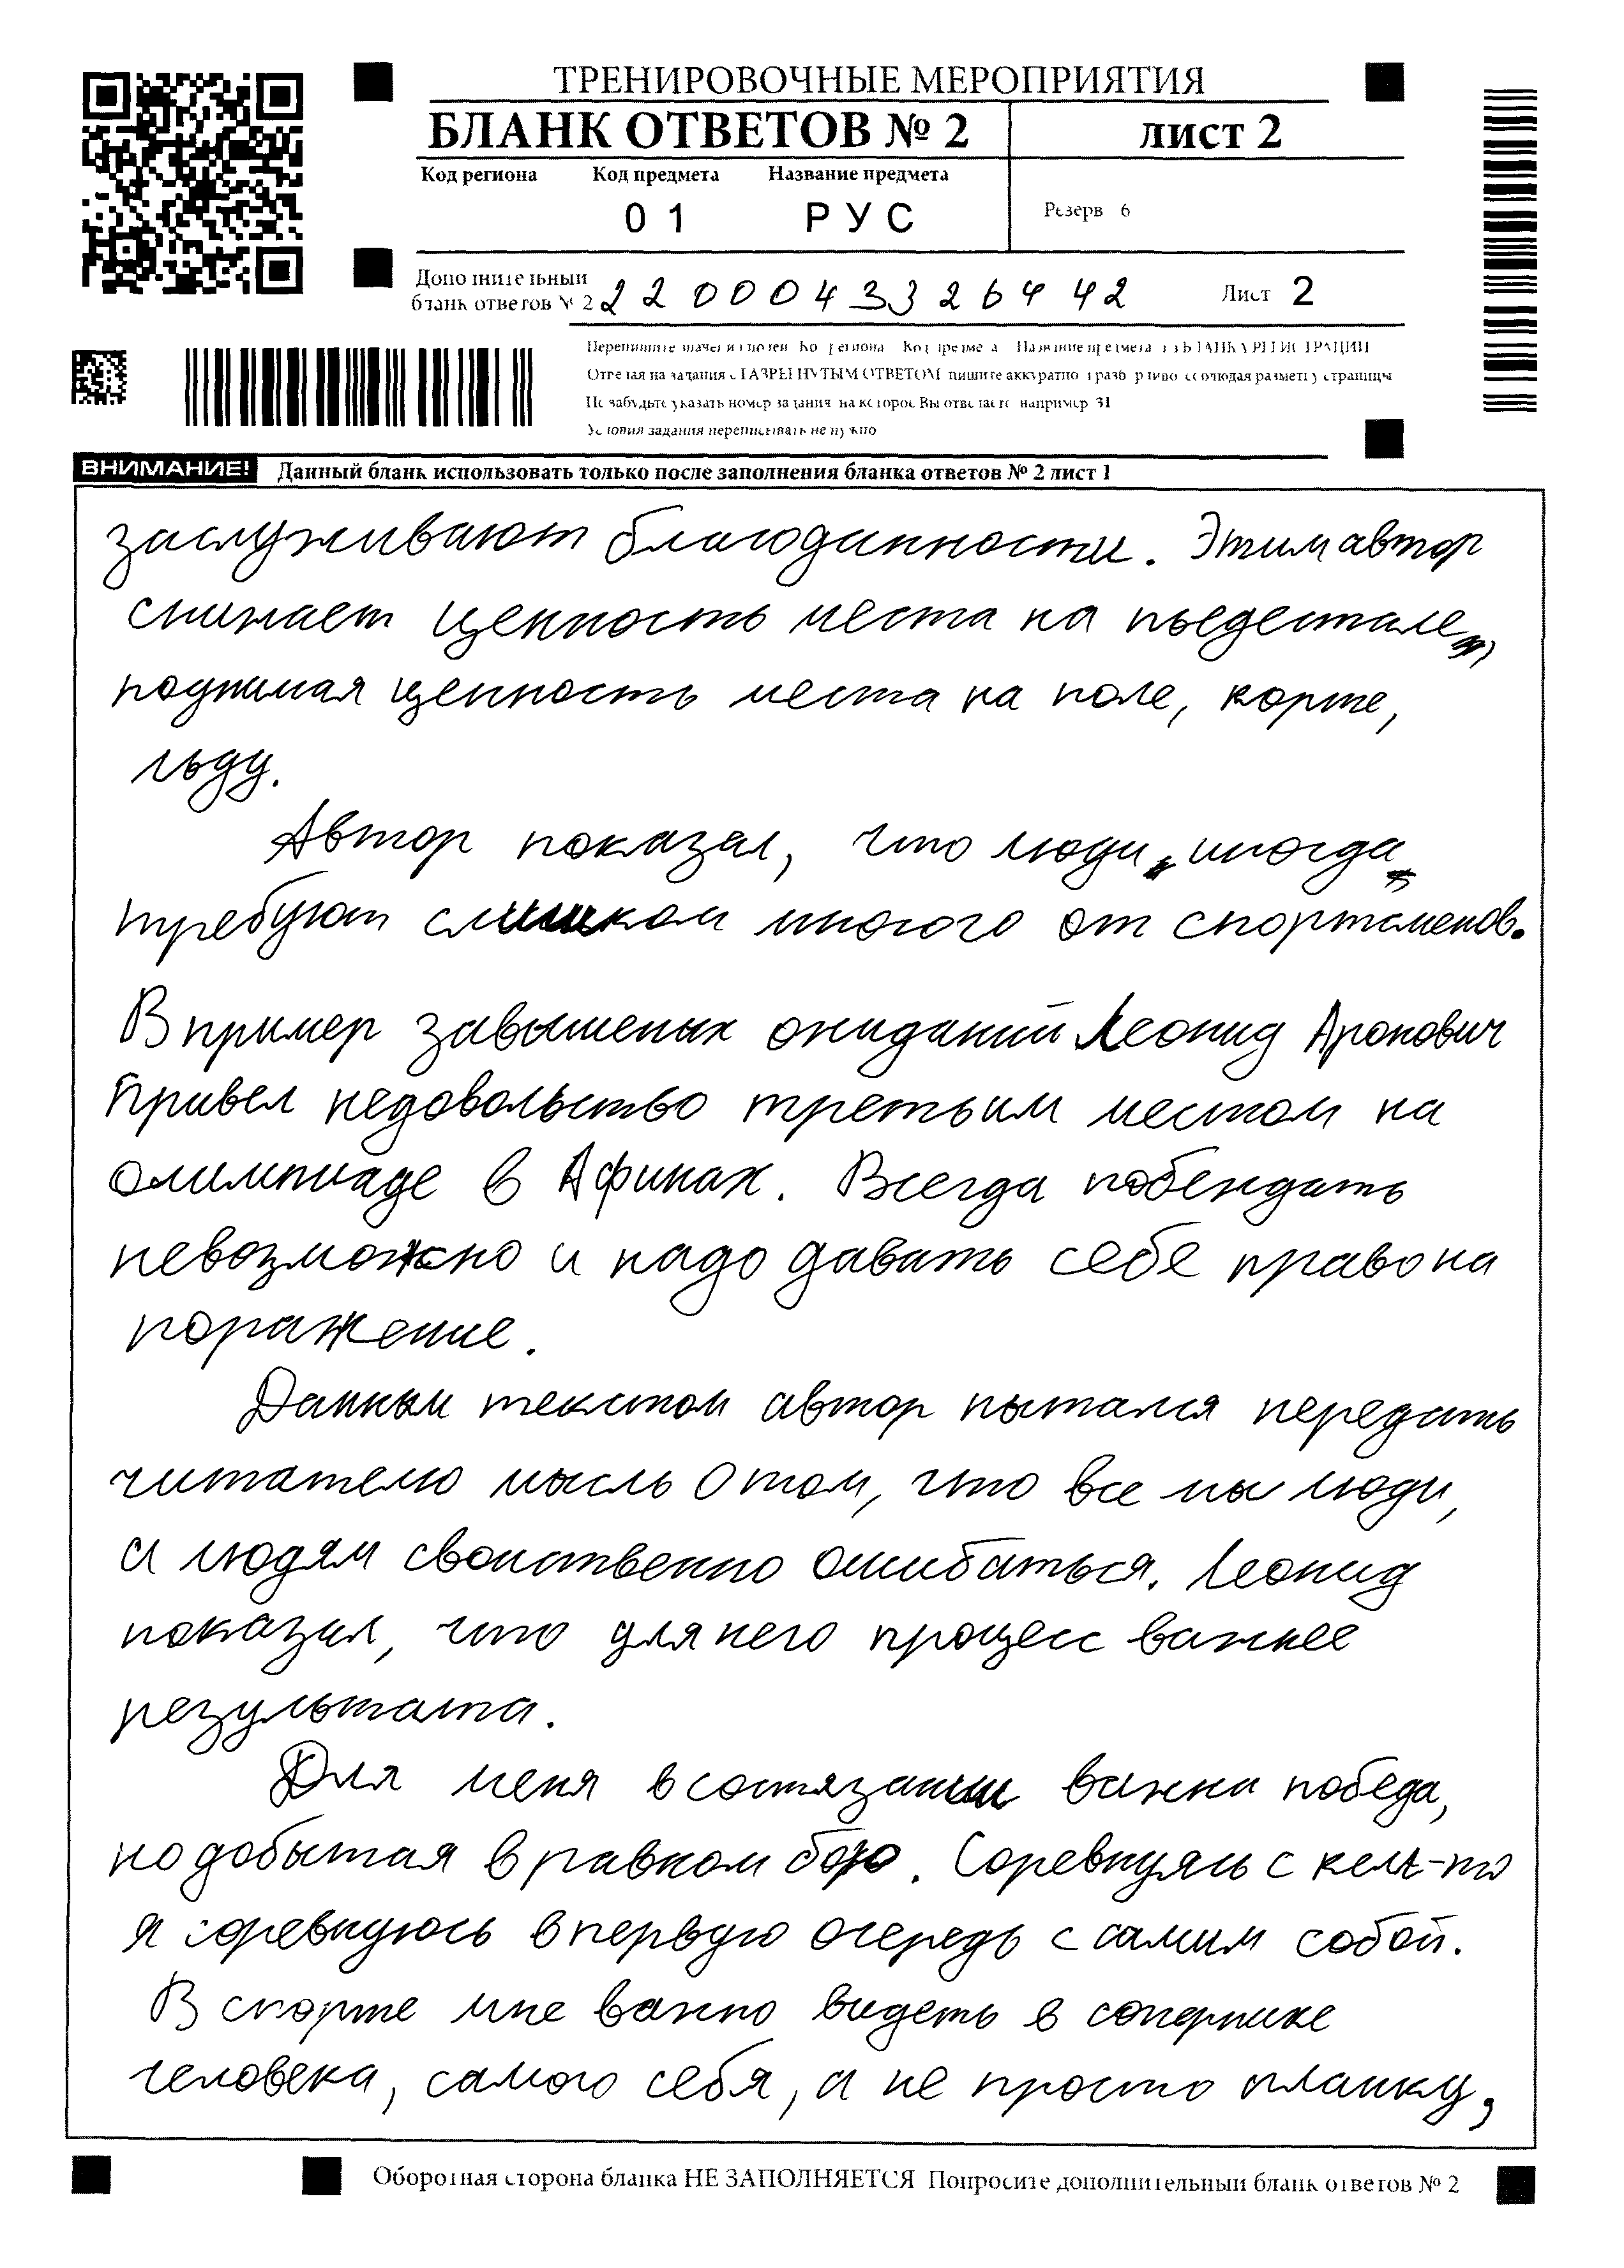 ТРЕНИРОВОЧНЫЕ МЕРОПРИЯТИЯ
БЛАНК ОТВЕТОВ № 2
ЛИСТ 2
Код региона Код предмета Название предмета
01 РУС
Резерв 6
Дополнительный
бланк ответов № 2
2200043326442
Лист 2
Перепишите значения полей Код региона Код предмета Название предмета из БЛАНКА РЕГИСТРАЦИИ
Отвечая на задания с РАЗВЕРНУТЫМ ОТВЕТОМ пишите аккуратно и разборчиво соблюдая разметку страницы
Не забудьте указать номер задания на которое Вы отвечаете например 31
Условия задания переписывать не нужно
ВНИМАНИЕ! Данный бланк использовать только после заполнения бланка ответов № 2 лист 1
заслуживают благоданности. Этим автор
снижает ценность места на пьедестале,
поднимая ценность места на поле, корте,
льду.
Автор показал, что люди иногда
требуют слишком многого от спортсменов.
В пример завышеных ожиданий Леонид Аронович
привел недовольство третьим местом на
олимпиаде в Афинах. Всегда побеждать
невозможно и надо давать себе право на
поражение.
Данным текстом автор пытался передать
читателю мысль о том, что все мы люди,
а людям свойственно ошибаться. Леонид
показал, что для него процесс важнее
результата.
Для меня в состязании важна победа,
но добытая в равном бою. Соревнуясь с кем-то
я соревнуюсь в первую очередь с самим собой.
В спорте мне важно видеть в сопернике
человека, самого себя, а не просто планку,
Оборотная сторона бланка НЕ ЗАПОЛНЯЕТСЯ Попросите дополнительный бланк ответов № 2